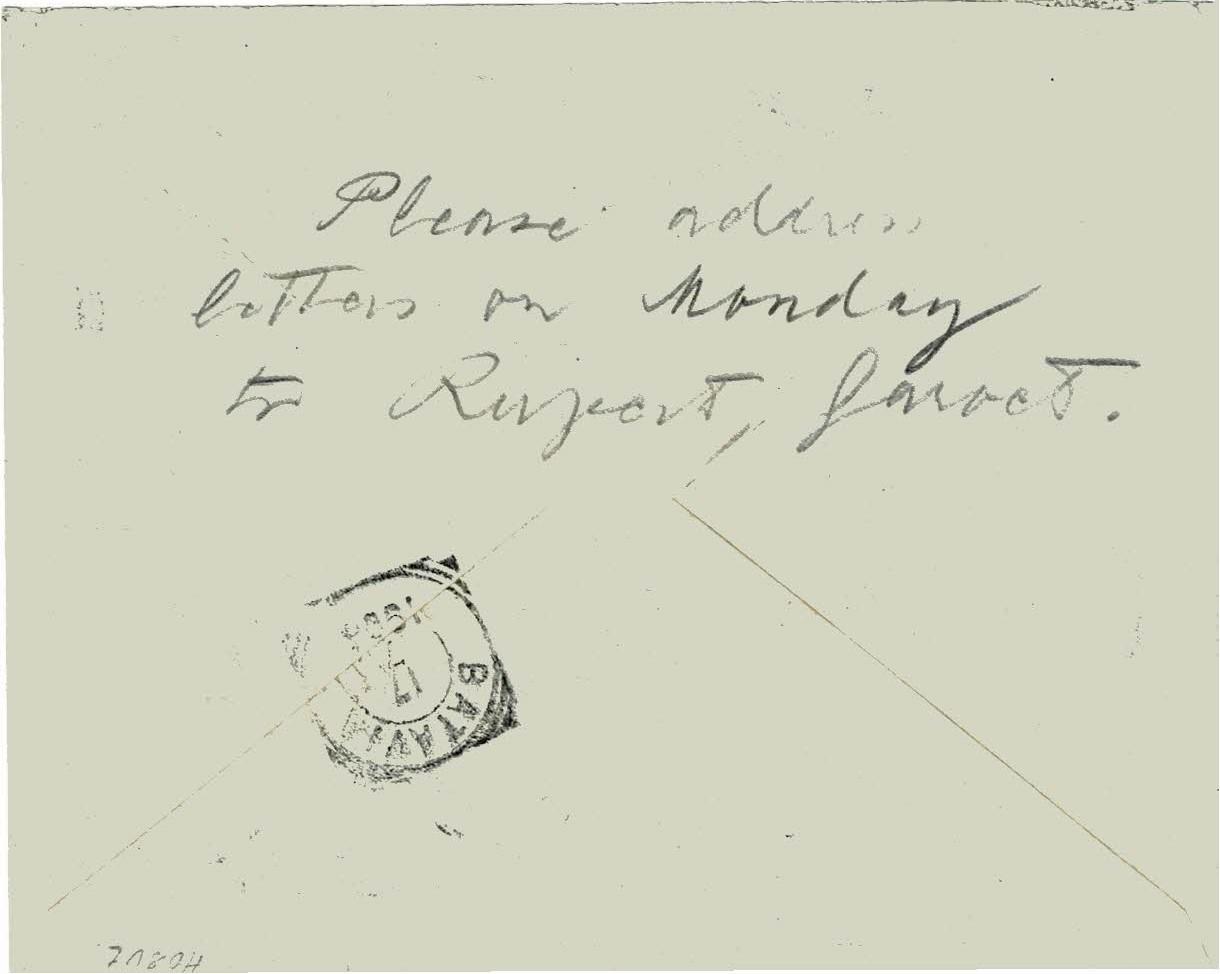 Please address
letters on Monday
to Rupert, Garoet.
BATAVIA
17